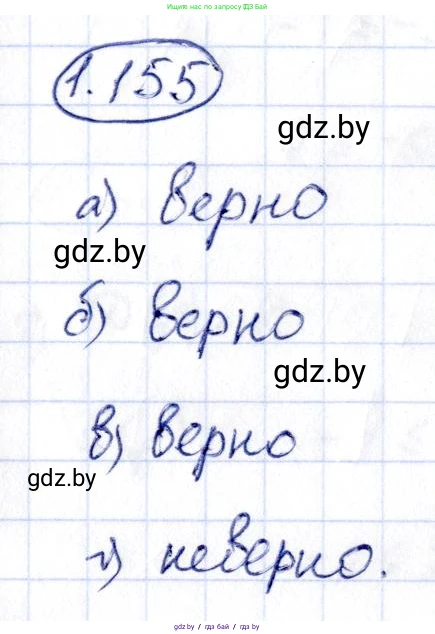 Ищи нас в интернете
по запросу "ГДЗ БАЙ"
1.155
gdz.by
а) верно
gdz.by
б) верно
gdz.by
в) верно
gdz.by
г) неверно.
gdz by / гдз бай / gdz.by